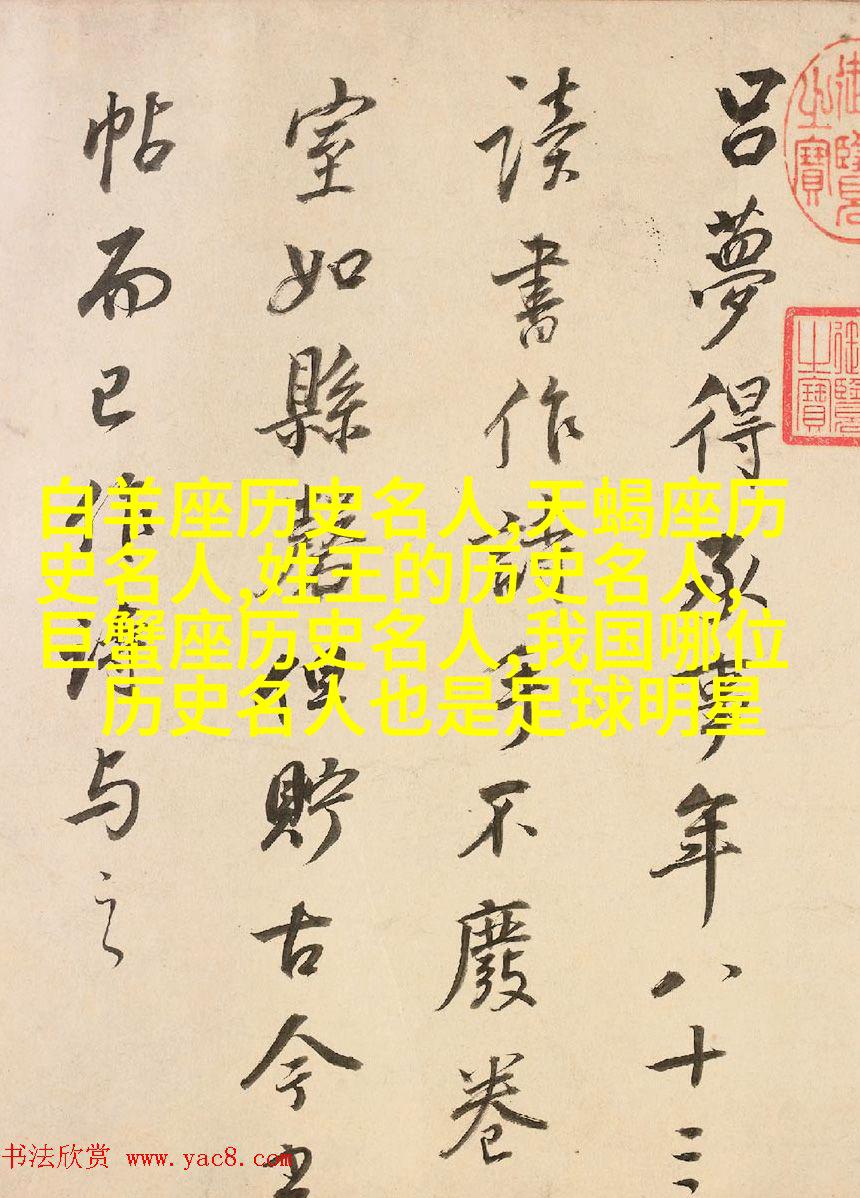 呂夢得承事年八十三
讀書作詩手不廢卷
室如縣磬但貯古今
帖而已作詩与之
白羊座历史名人,天蝎座历
史名人,姓王的历史名人,
巨蟹座历史名人,我国哪位
历史名人也是足球明星
书法欣赏 www.yac8.com